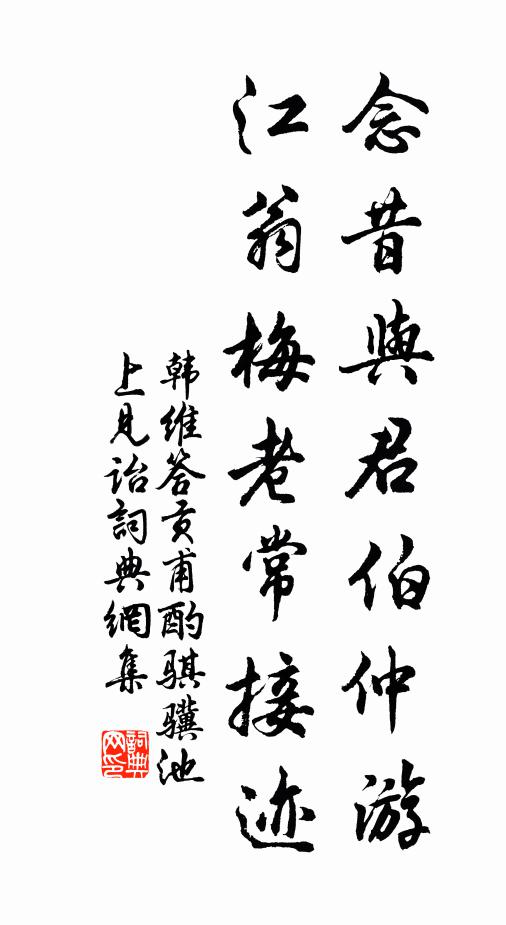 念昔與君伯仲游
江翁梅老常接迹
韩维答贡甫酌骐骥池
上见诒詞典網集
詞典
网印